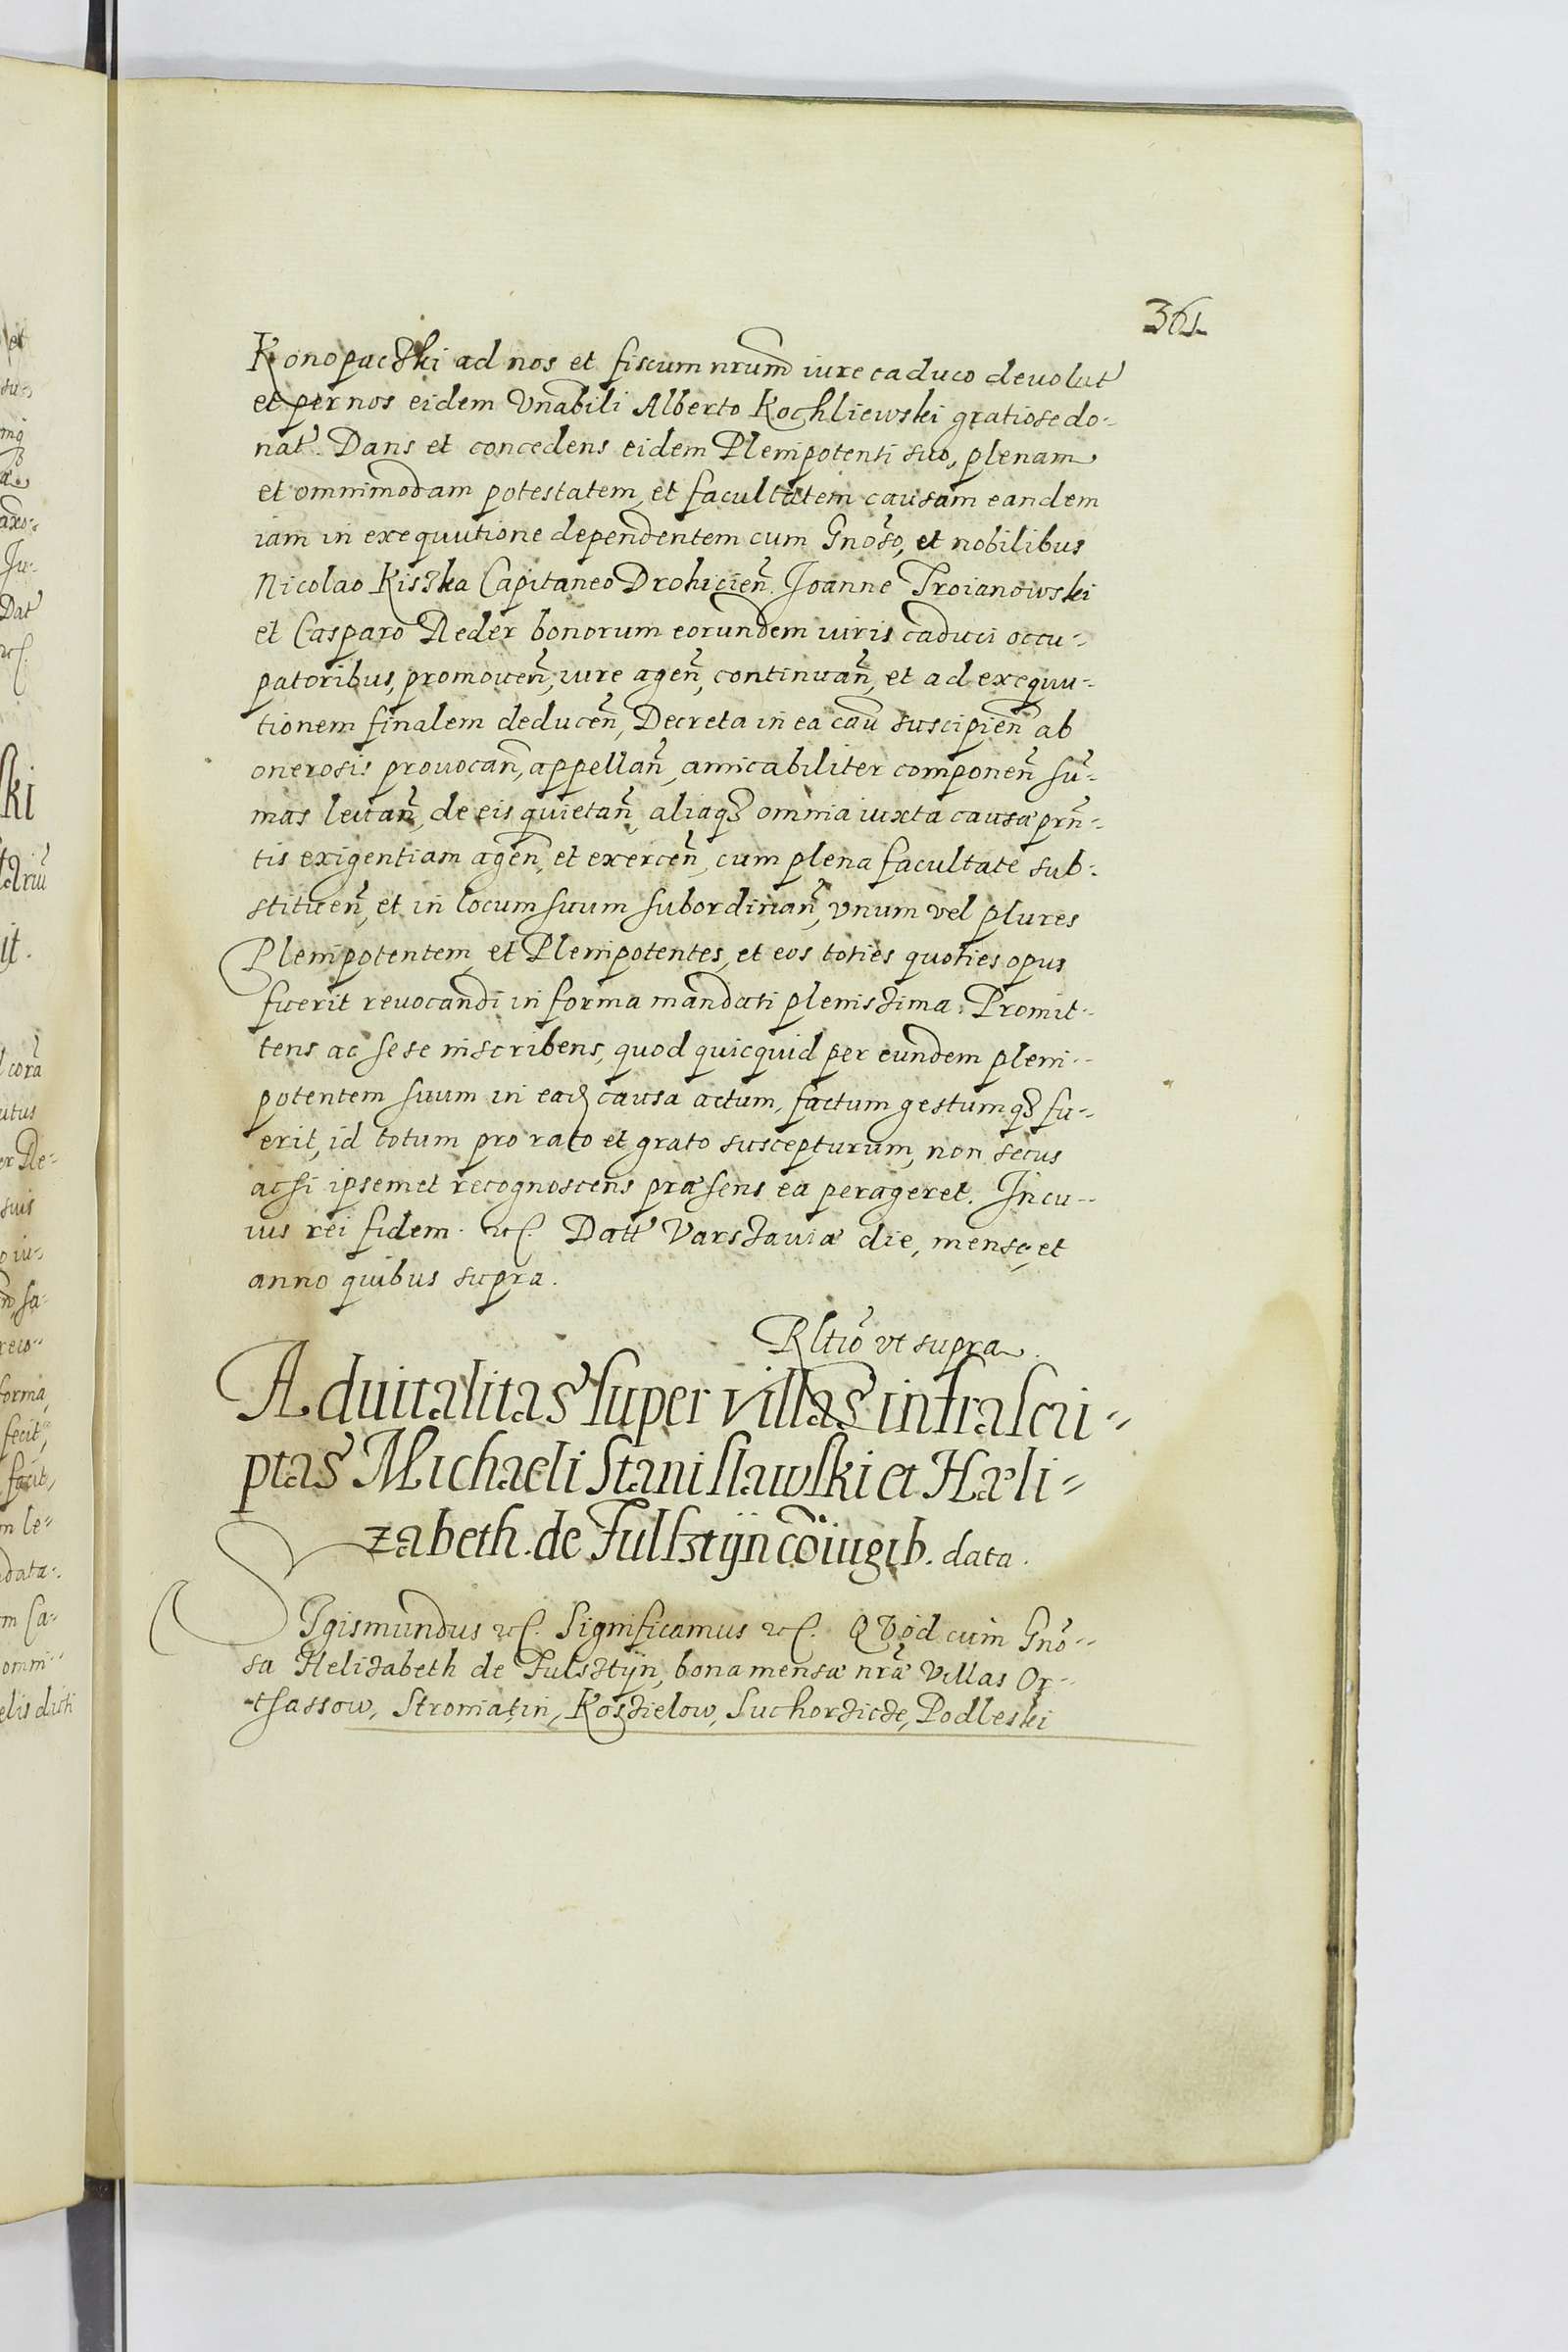 361
Konopaczki ad nos et fiscum nrum̄ iure caduco devolut
et per nos eidem Vnabili Alberto Kochliewski gratiose do-
nat. Dans et concedens eidem Plenipotenti suo, plenam
et omnimodam potestatem, et facultatem causam eandem
iam in exequutione dependentem cum Gnoso, et nobilibus
Nicolao Kiszka Capitaneo Drohicień. Joanne Troianowski
et Casparo Reder bonorum eorundem iuris caduci occu-
patoribus, promoveń, iure ageń, continuań, et ad exequu-
tionem finalem deduceń, Decreta in ea cau suscipień ab
onerosis provocań, appellań, amicabiliter componeń sū-
mas levań, de eis quietań, aliaqz omnia iuxta causæ prn̄-
tis exigentiam ageń, et exerceń, cum plena facultate sub-
stitueń, et in locum suum subordinań, vnum vel plures
Plenipotentem, et Plenipotentes, et eos toties quoties opus
fuerit revocandi in forma mandati plenissima. Promit-
tens ac sese inscribens, quod quicquid per eundem pleni-
potentem suum in ead causa actum, factum gestumqz fu-
erit, id totum pro rato et grato suscepturum, non secus
ac si ipsemet recognoscens præsens ea perageret. In cu-
ius rei fidem. etc. Datt Varsaviæ die, mense, et
anno quibus supra.
Rltio vt supra.
Advitalitas super villas infrascri-
ptas Michaeli Stanislawski et Hæli-
zabeth. de Fulsztijn cōiugib. data.
SIgismundus etc. Significamus etc. QVod cum Gnō-
sa Helizabeth de Fulsztijn, bona mensæ nrǣ Villas Or-
tsassow, Stromiatin, Koszielow, Suchorzicze, Podleski